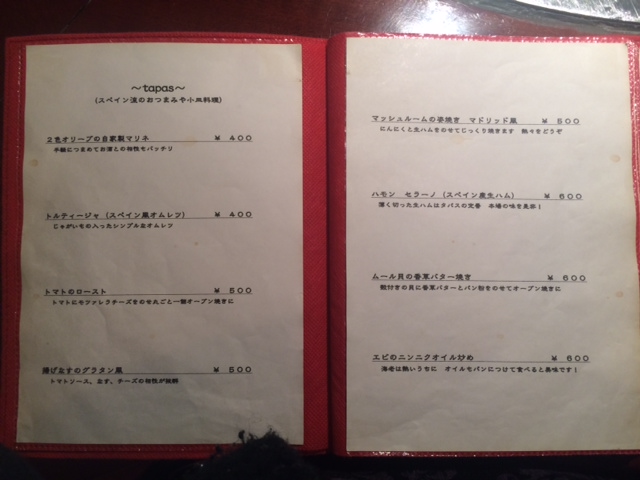 ～tapas～
(スペイン流のおつまみや小皿料理)
２色オリーブの自家製マリネ ￥ ４００
手軽につまめてお酒との相性もバッチリ
トルティージャ（スペイン風オムレツ） ￥ ４００
じゃがいもの入ったシンプルなオムレツ
トマトのロースト ￥ ５００
トマトにモッツァレラチーズをのせ丸ごと一個オーブン焼きに
揚げなすのグラタン風 ￥ ５００
トマトソース、なす、チーズの相性が抜群
マッシュルームの姿焼き マドリッド風 ￥ ５００
にんにくと生ハムをのせてじっくり焼きます 熱々をどうぞ
ハモン セラーノ（スペイン産生ハム） ￥ ６００
薄く切った生ハムはタパスの定番 本場の味を是非！
ムール貝の香草バター焼き ￥ ６００
殻付きの貝に香草バターとパン粉をのせてオーブン焼きに
エビのニンニクオイル炒め ￥ ６００
海老は熱いうちに オイルもパンにつけて食べると美味です！